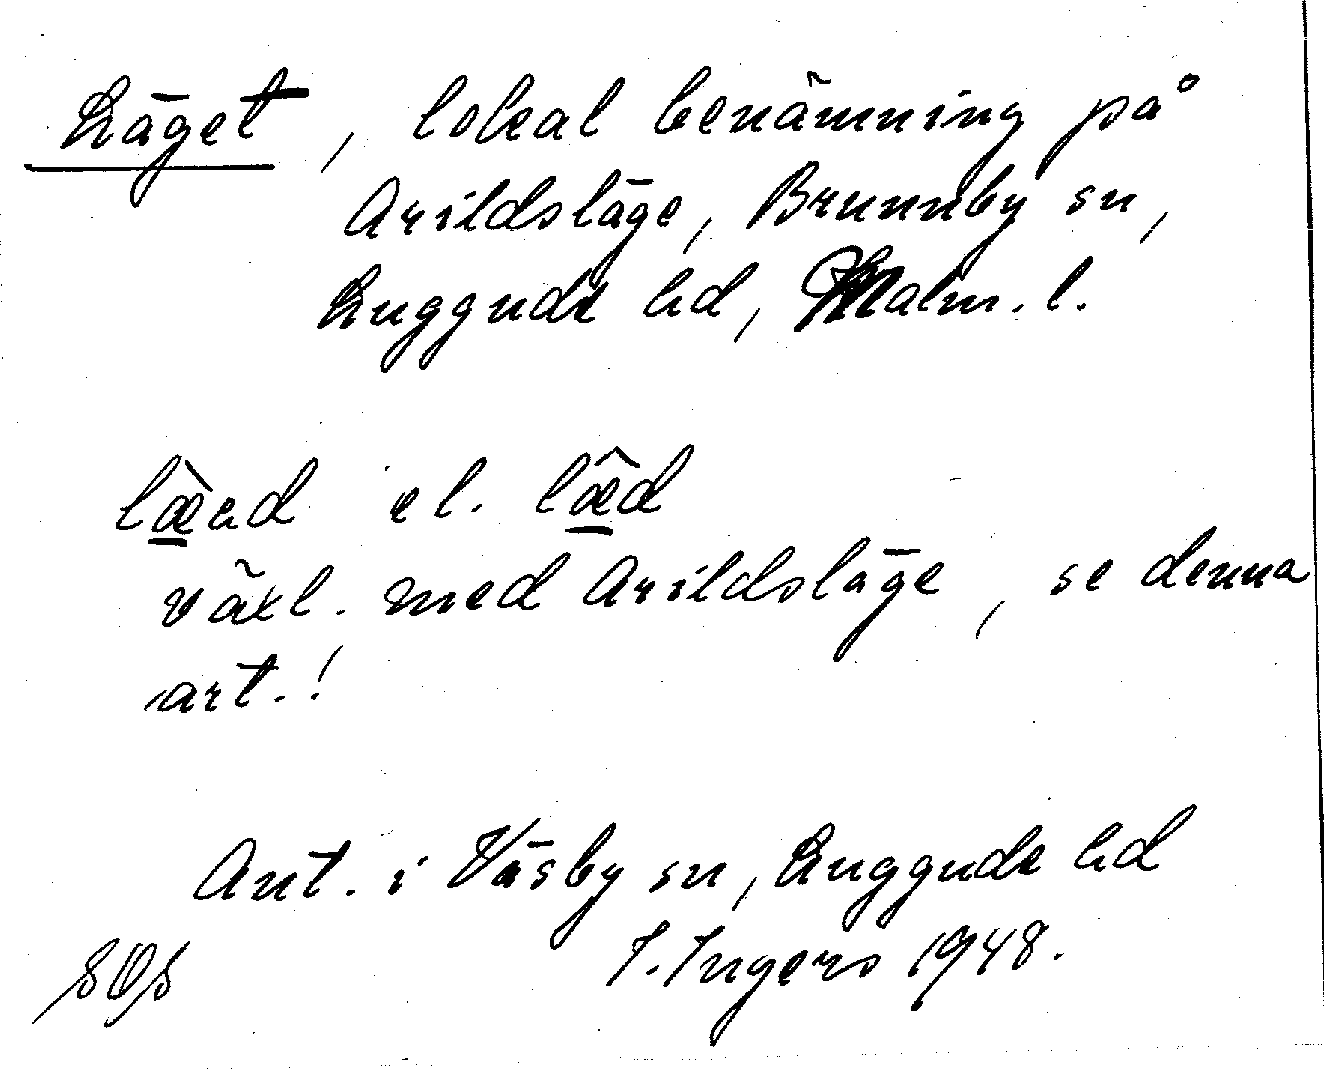 Läget, lokal benämning på
Arildsläge, Brunnby sn,
Luggude hd, Malm. l.
læ̂əd el. læ̂d
växl. med Arildsläge, se denna
art.!
Ant. i Väsby sn, Luggude hd
I. Ingers 1948.